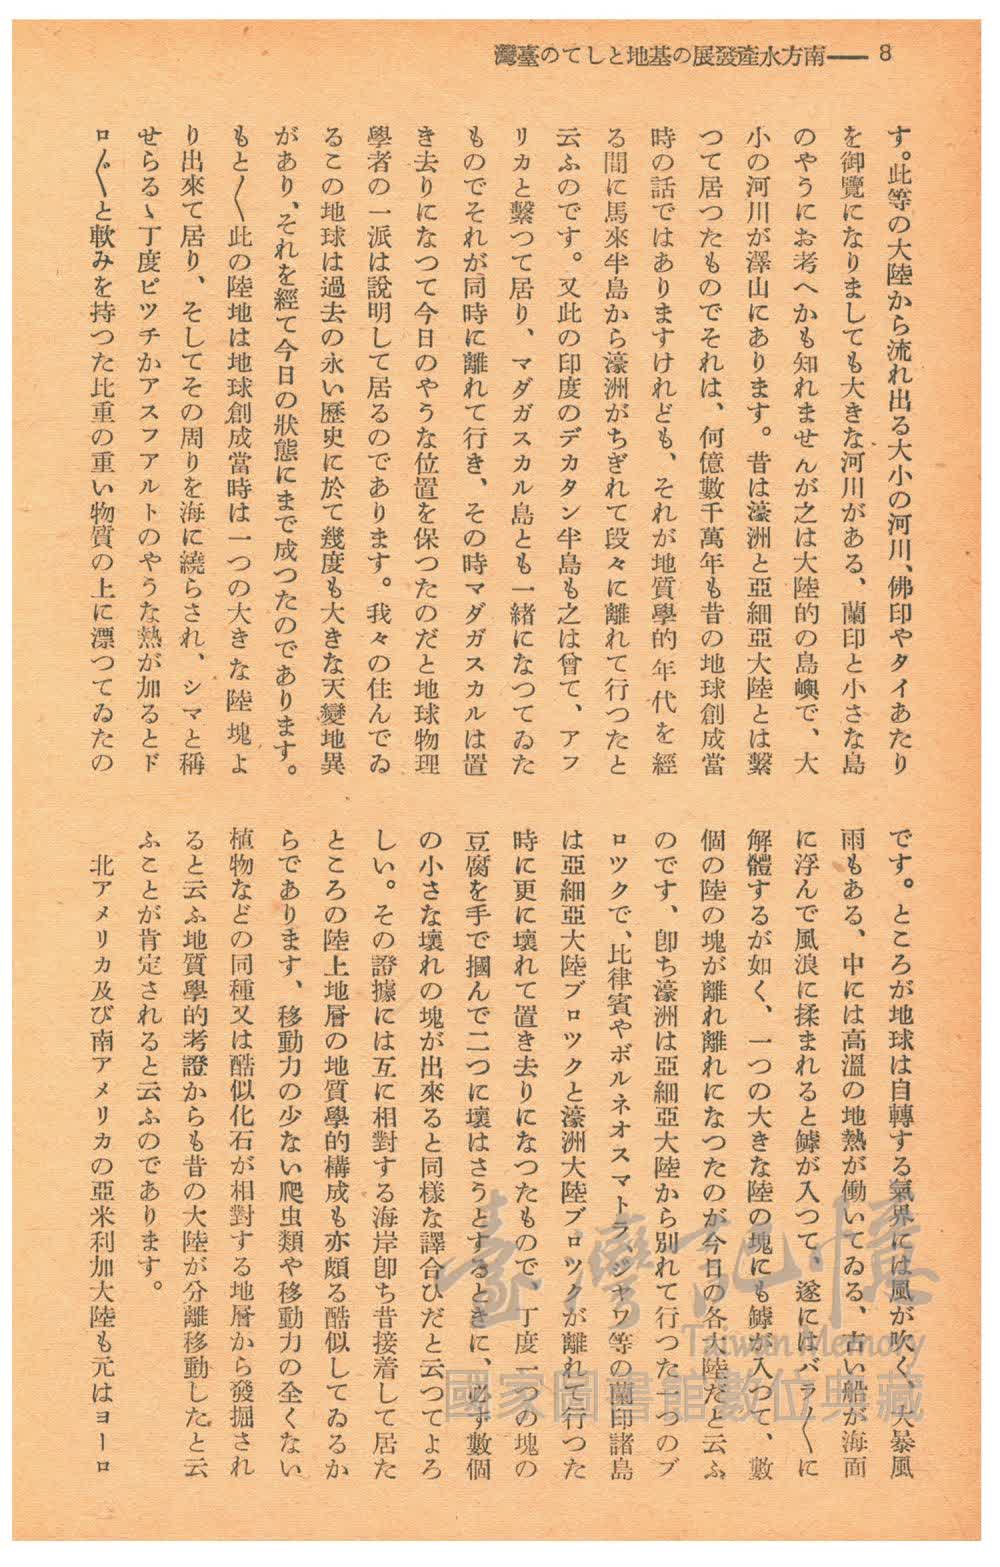 8 ──南方水產發展の基地としての臺灣
す。此等の大陸から流れ出る大小の河川、佛印やタイあたり
を御覽になりましても大きな河川がある、蘭印と小さな島
のやうにお考へかも知れませんが之は大陸的の島嶼で、大
小の河川が澤山にあります。昔は濠洲と亞細亞大陸とは繋
つて居つたものでそれは、何億數千萬年も昔の地球創成當
時の話ではありますけれども、それが地質學的年代を經
る間に馬來半島から濠洲がちぎれて段々に離れて行つたと
云ふのです。又此の印度のデカタン半島も之は曾て、アフ
リカと繋つて居り、マダガスカル島とも一緒になつてゐた
ものでそれが同時に離れて行き、その時マダガスカルは置
き去りになつて今日のやうな位置を保つたのだと地球物理
學者の一派は說明して居るのであります。我々の住んでゐ
るこの地球は過去の永い歷史に於て幾度も大きな天變地異
があり、それを經て今日の狀態にまで成つたのであります。
もと〱此の陸地は地球創成當時は一つの大きな陸塊よ
り出來て居り、そしてその周りを海に繞らされ、シマと稱
せらるゝ丁度ピツチかアスフアルトのやうな熱が加るとド
ロ〲と軟みを持つた比重の重い物質の上に漂つてゐたの
です。ところが地球は自轉する氣界には風が吹く、大暴風
雨もある、中には高溫の地熱が働いてゐる、古い船が海面
に浮んで風浪に揉まれると罅が入つて、遂にはバラ〱に
解體するが如く、一つの大きな陸の塊にも罅が入つて、數
個の陸の塊が離れ離れになつたのが今日の各大陸だと云ふ
のです、卽ち濠洲は亞細亞大陸から別れて行つた一つのブ
ロツクで、比律賓やボルネオスマトラ、ジヤワ等の蘭印諸島
は亞細亞大陸ブロツクと濠洲大陸ブロツクが離れて行つた
時に更に壞れて置き去りになつたもので、丁度一つの塊の
豆腐を手で摑んで二つに壞はさうとするときに、必ず數個
の小さな壞れの塊が出來ると同樣な譯合ひだと云つてよろ
しい。その證據には互に相對する海岸卽ち昔接着して居た
ところの陸上地層の地質學的構成も亦頗る酷似してゐるか
らであります、移動力の少ない爬虫類や移動力の全くない
植物などの同種又は酷似化石が相對する地層から發掘され
ると云ふ地質學的考證からも昔の大陸が分離移動したと云
ふことが肯定されると云ふのであります。
北アメリカ及び南アメリカの亞米利加大陸も元はヨーロ
臺灣記憶
Taiwan Memory
國家圖書館數位典藏